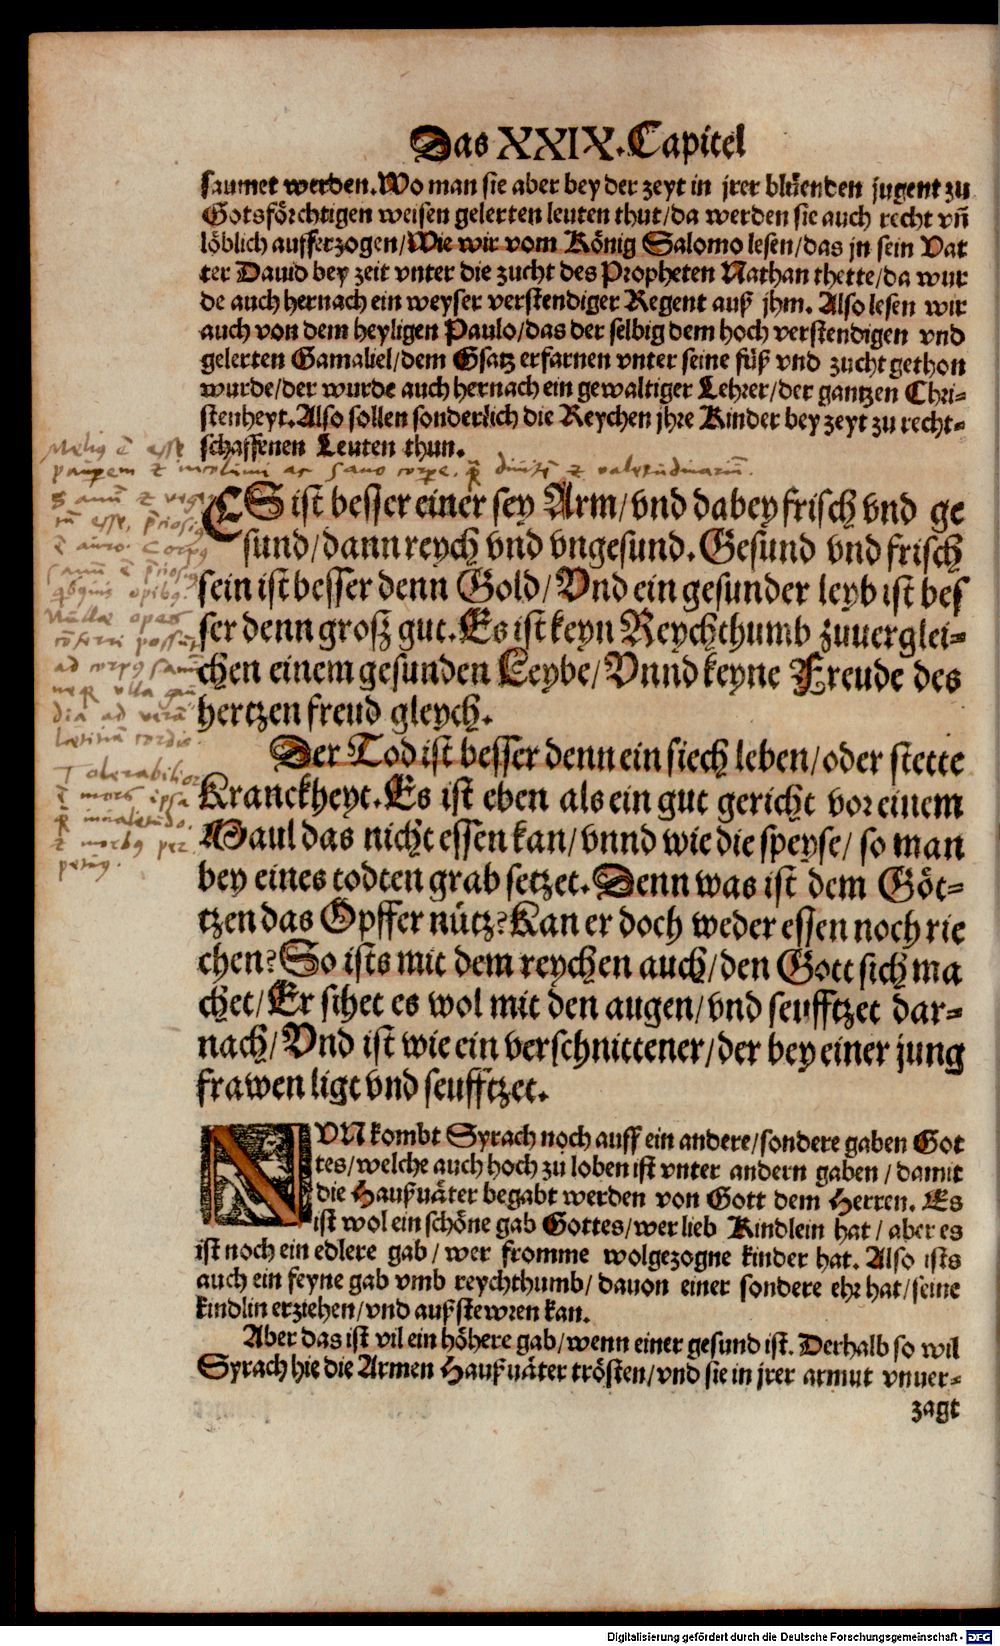 Das XXIX. Capitel
saumet werden. Wo man sie aber bey der zeyt in jrer blüenden jugent zu
Gotsförchtigen weisen gelerten leuten thut/ da werden sie auch recht vñ
löblich aufferzogen/ Wie wir vom König Salomo lesen/ das jn sein Vat
ter Dauid bey zeit vnter die zucht des Propheten Nathan thette/ da wur
de auch hernach ein weyser verstendiger Regent auß jhm. Also lesen wir
auch von dem heyligen Paulo/ das der selbig dem hoch verstendigen vnd
gelerten Gamaliel/ dem Gsatz erfarnen vnter seine füß vnd zucht gethon
wurde/ der wurde auch hernach ein gewaltiger Lehrer/ der gantzen Chri-
stenheyt. Also sollen sonderlich die Reychen jhre Kinder bey zeyt zu recht-
schaffenen Leuten thun.
Meliꝰ ē esse
pauꝑem et incolumi ac sano corpe, q̄ᷓ divitē et valetudinariū.
Sanū et vege-
tū esse, p̄tiosiꝰ
ē auro. Corpꝰ
sanū ē p̄tiosiꝰ
qbꝰvis opibꝰ.
Nullae opes
cōferri possūt
ad corpꝰ sanū
neq ulla gau
dia ad verā
laetitiā cordis.
ES ist besser einer sey Arm/ vnd dabey frisch vnd ge
sund/ dann reych vnd vngesund. Gesund vnd frisch
sein ist besser denn Gold/ Vnd ein gesunder leyb ist bes
ser denn groß gut. Es ist keyn Reychthumb zuuerglei-
chen einem gesunden Leybe/ Vnnd keyne Freude des
hertzen freud gleych.
Tolerabilior
ē mors ipsa
q̄ᷓ mala valetudo,
et morbꝰ per
petuꝰ.
Der Tod ist besser denn ein siech leben/ oder stette
Kranckheyt. Es ist eben als ein gut gericht vor einem
Maul das nicht essen kan/ vnnd wie die speyse/ so man
bey eines todten grab setzet. Denn was ist dem Göt-
tzen das Opffer nütz? Kan er doch weder essen noch rie
chen? So ists mit dem reychen auch/ den Gott sich ma
chet/ Er sihet es wol mit den augen/ vnd seufftzet dar-
nach/ Vnd ist wie ein verschnittener/ der bey einer jung
frawen ligt vnd seufftzet.
NVN kombt Syrach noch auff ein andere/ sondere gaben Got
tes/ welche auch hoch zu loben ist vnter andern gaben/ damit
die Haußuäter begabt werden von Gott dem Herren. Es
ist wol ein schöne gab Gottes/ wer lieb Kindlein hat/ aber es
ist noch ein edlere gab/ wer fromme wolgezogne kinder hat. Also ists
auch ein feyne gab vmb reychthumb/ dauon einer sondere ehr hat/ seine
kindlin erziehen/ vnd außstewren kan.
Aber das ist vil ein höhere gab/ wenn einer gesund ist. Derhalb so wil
Syrach hie die Armen Haußuäter trösten/ vnd sie in jrer armut vnuer-
zagt
Digitalisierung gefördert durch die Deutsche Forschungsgemeinschaft - DFG